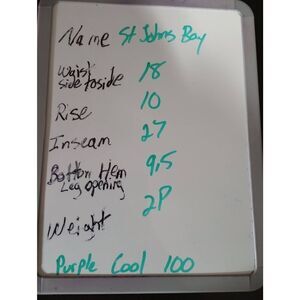 Name St Johns Bay
Waist 18
side to side
Rise 10
Inseam 27
Bottom Hem 9.5
Leg opening
2P
Weight
Purple Cool 100